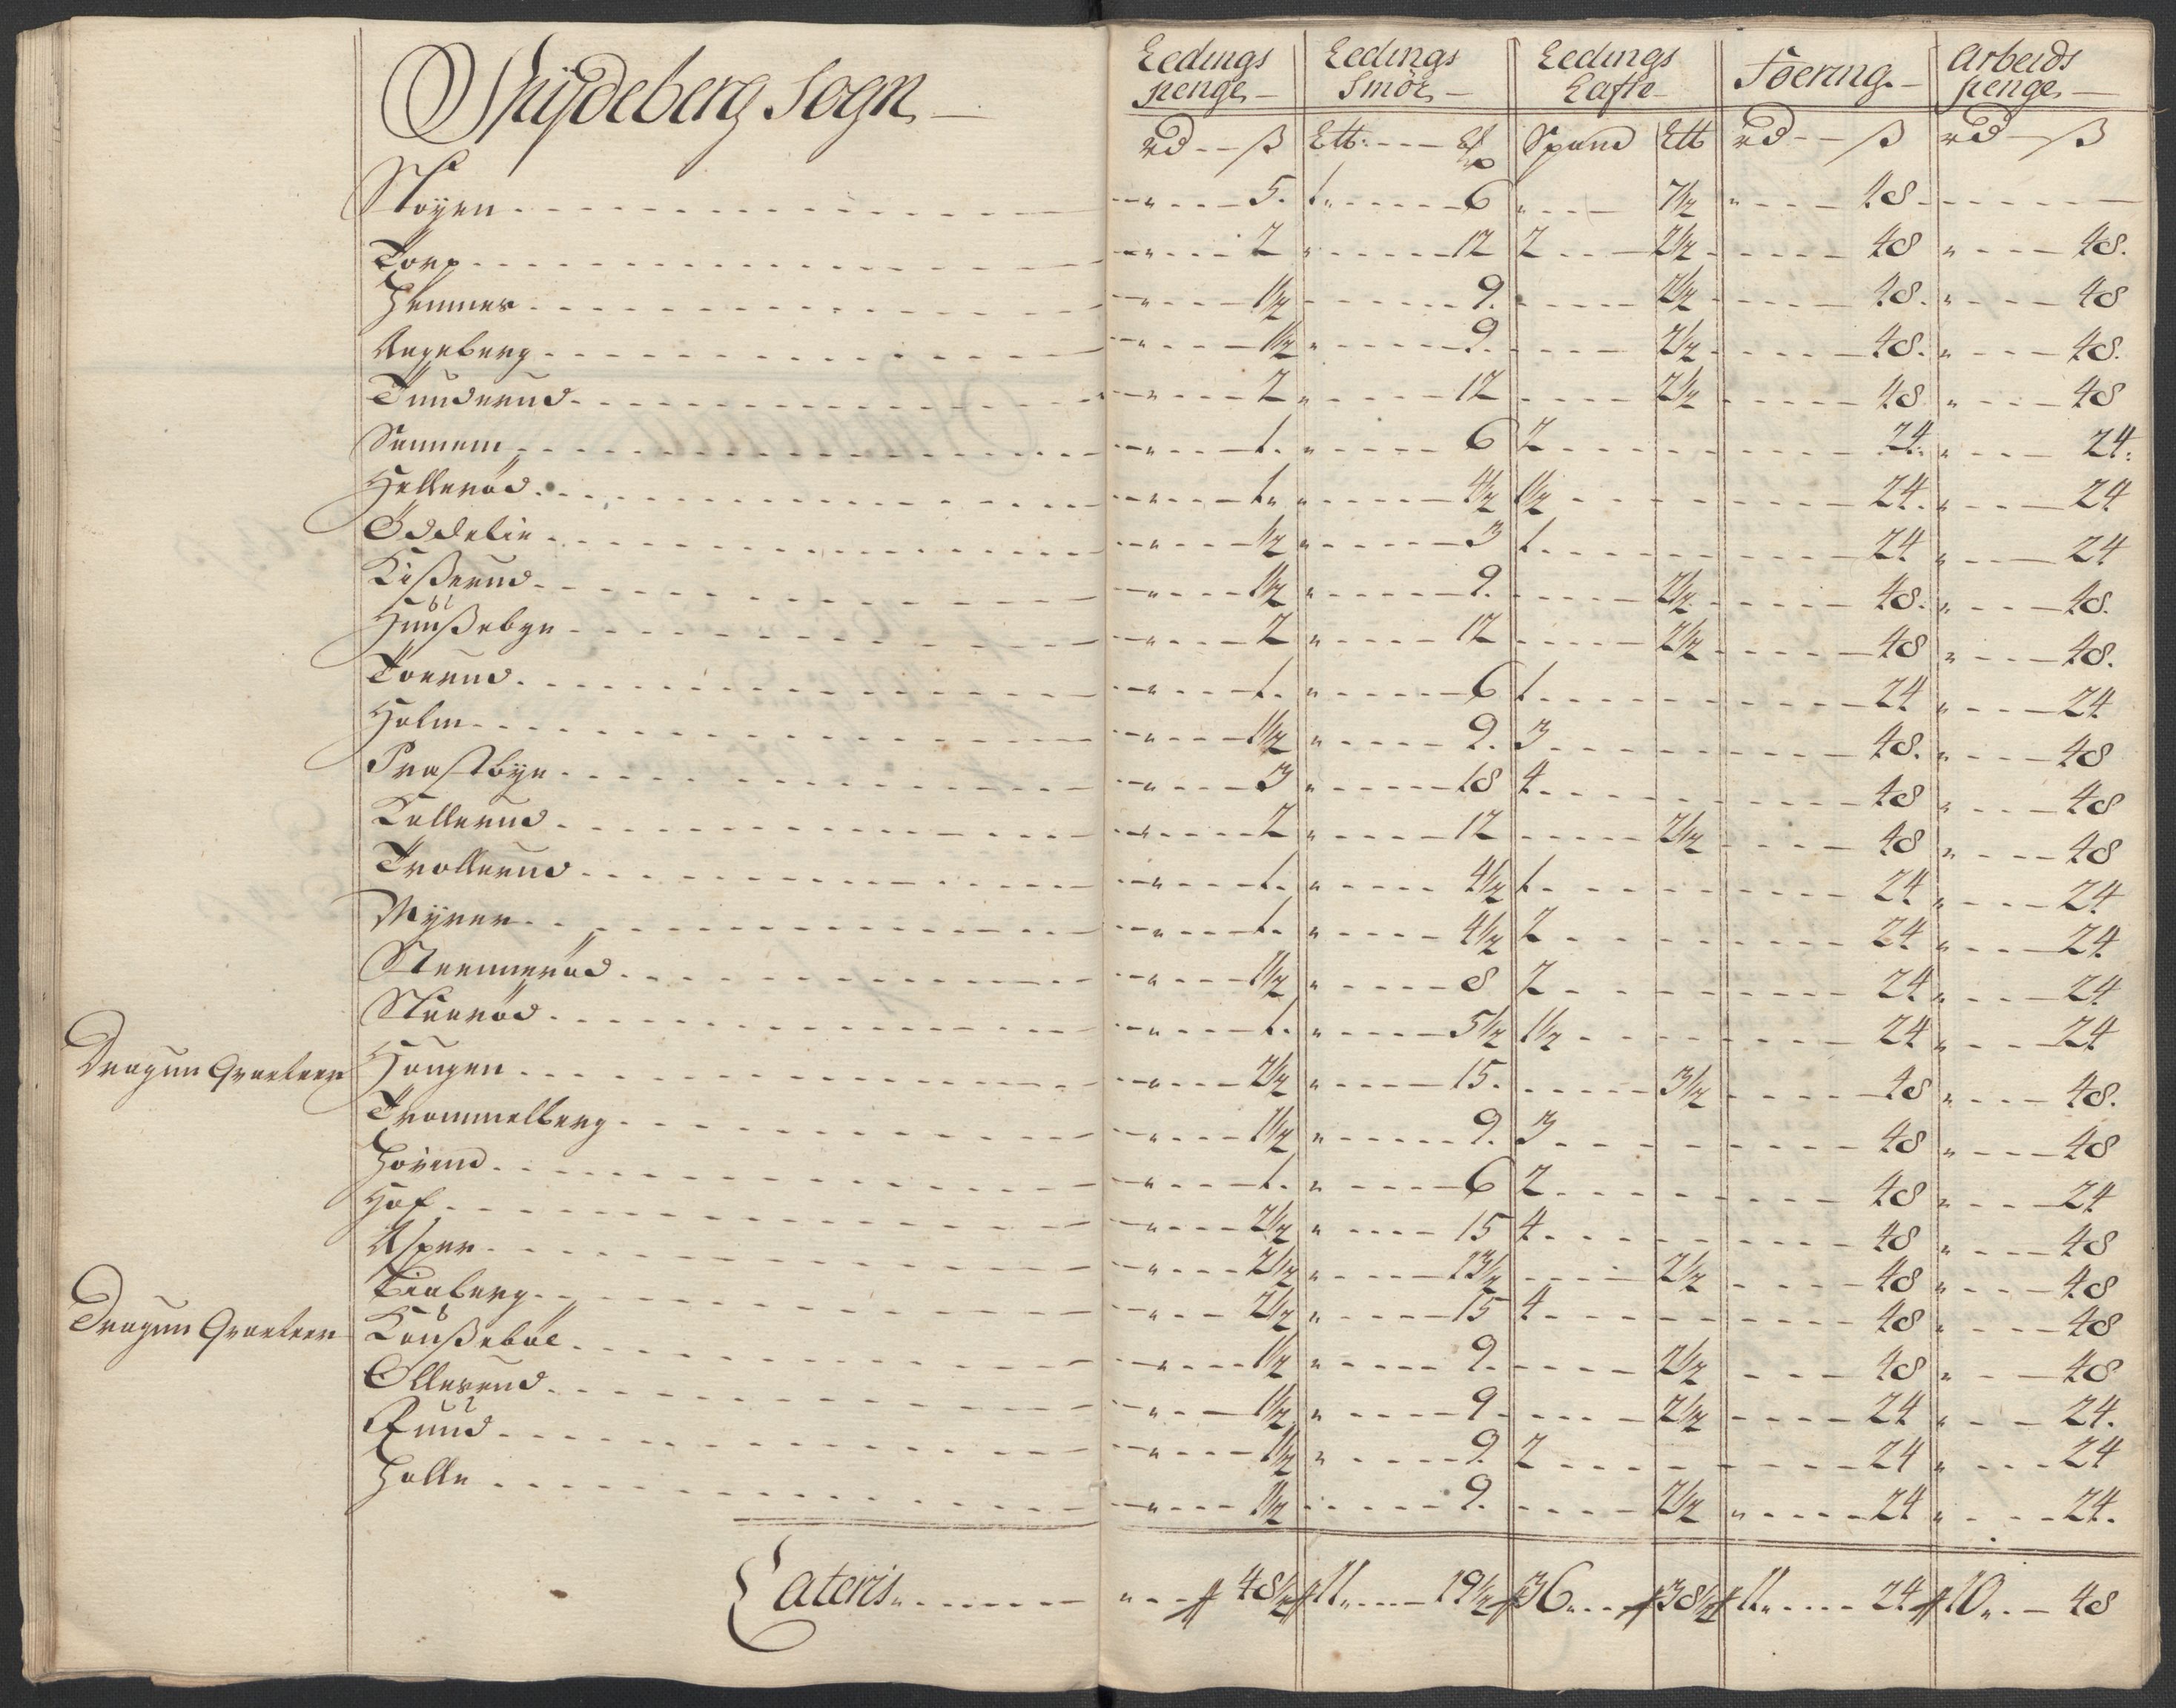 Spÿdeberg Sogn
Leedings penge Leedings Smör Leedings Laxse Foering Arbeids penge
rd ß Ltt: Spand Ltt rd ß rd ß
Støyen 5. 1 6 7½ 48
Torp 2 12 2 2½ 48 48.
Hemmer 1½ 9. 2½ 48. 48
Aageberg 1½ 9. 2½ 48. 48.
Tunderud 2 12 2½ 48 48
Sennem 1. 6 2 24. 24.
Hellerød 1. 4½ 1½ 24. 24
Oddelie ½ 3 1 24 24
Kißerud 1½ 9. 2½ 48. 48.
Huußebye 2 12 2½ 48 48.
Toerud 1. 6 1 24 24
Holm 1½ 9. 3 48. 48
Prastbye 3 18 4 48 48
Kallerud 2 12 2½ 48 48
Trollerud 1. 4½ 1 24 24
Myrer 1. 4½ 2 24 24
Steennerød 1½ 8 2 24 24
Steerød 1. 5½ 1½ 24 24
Dragun Qvarteer Hougen 2½ 15. 3½ 48 48.
Trommelberg 1½ 9. 3 48 48
Hovind 1. 6 2 48 24
Hof 2½ 15 4 48 48
Asper 2½ 13½ 2½ 48 48
Lieberg 2½ 15 4 48 48
Dragun Qvarteer Koußebøl 1½ 9. 2½ 48 48
Ollerud 1½ 9 2½ 24 24.
Ruud 1½ 9. 2 24 24
Holle 1½ 9. 2½ 24 24.
Lateris 48½ 11 19½ 36 38½ 11 24 10 48